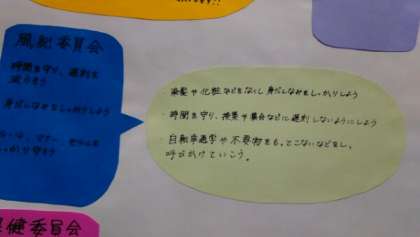 風紀委員会
時間を守り、遅刻を
身だしなみをしっかりしよう
・染髪や化粧などをなくし身だしなみをしっかりしよう
・時間を守り、授業や集会などに遅刻しないようにしよう
・自転車通学や不要物をもってこないなどをし、
呼びかけていこう。
保健委員会